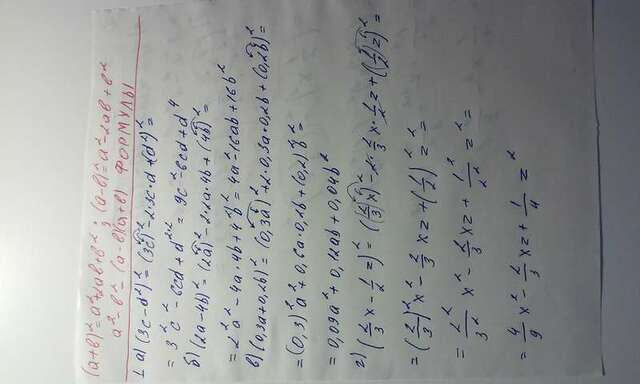 (a+b)²=a²+2ab+b²; (a-b)²=a²-2ab+b²
a²-b²=(a-b)(a+b) ФОРМУЛЫ
1. а) (3c-d²)²=(3c)²-2·3c·d+(d²)²=
=3²c²-6cd+d²·²=9c²-6cd+d⁴
б) (2a-4b)²=(2a)²-2·2a·4b+(4b)²=
=2²a²-4a·4b+4²b²=4a²-16ab+16b²
в) (0,3a+0,2b)²=(0,3a)²+2·0,3a·0,2b+(0,2b)²=
=(0,3)²a²+0,6a·0,2b+(0,2)²b²=
=0,09a²+0,12ab+0,04b²
г) (2/3 x - 1/2 z)²=(2/3 x)²-2·2/3 x·1/2 z+(1/2 z)²=
=(2/3)²x²-2/3 xz+(1/2)²z²=
=2²/3² x²-2/3 xz+1²/2² z²=
=4/9 x²-2/3 xz+1/4 z²